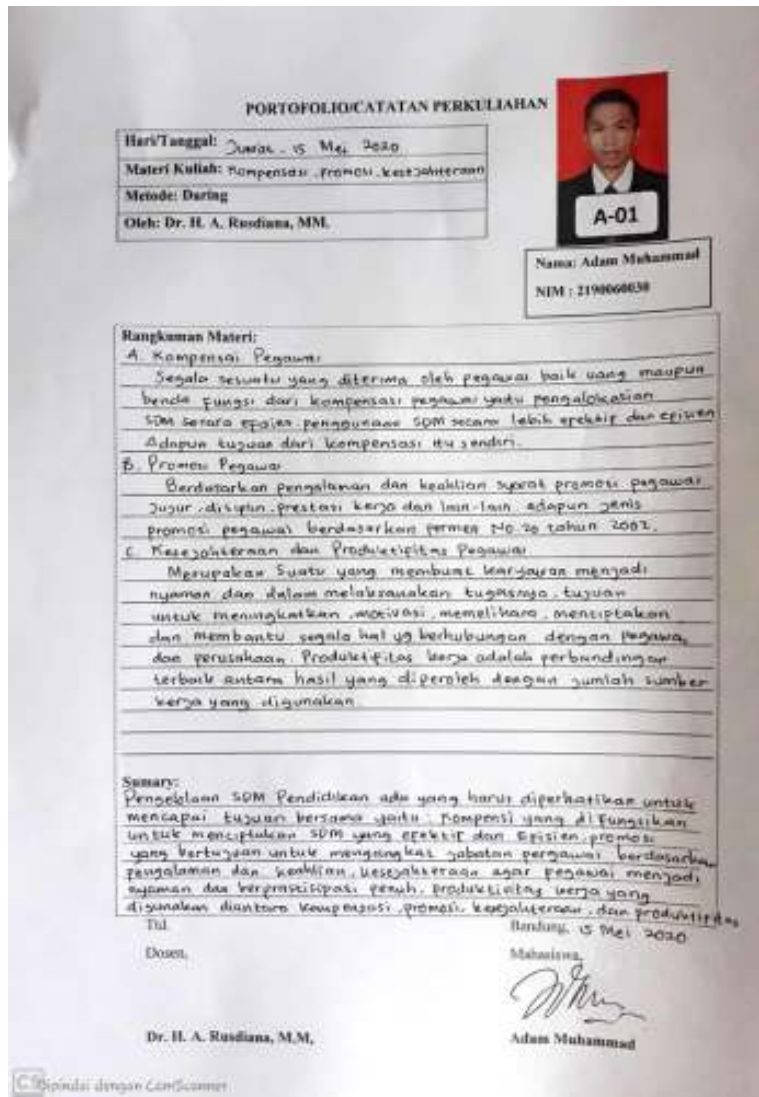 PORTOFOLIO/CATATAN PERKULIAHAN
Hari/Tanggal: Jumat - 15 Mei 2020
Materi Kuliah: Kompensasi, promosi, kesejahteraan
Metode: Daring
Oleh: Dr. H. A. Rusdiana, MM.
A-01
Nama: Adam Muhammad
NIM : 2190060030
Rangkuman Materi:
A. Kompensai Pegawai
Segala sesuatu yang diterima oleh pegawai baik uang maupun
benda fungsi dari kompensasi pegawai yaitu pengalokasian
SDM secara efisien penggunaan SDM secara lebih efektif dan episien
Adapun tujuan dari kompensasi itu sendiri.
B. Promosi Pegawai
Berdasarkan pengalaman dan keahlian syarat promosi pegawai
jujur, disiplin, prestasi kerja dan lain-lain adapun jenis
promosi pegawai berdasarkan permen No. 20 tahun 2002.
C. Kesejahteraan dan Produktipitas Pegawai
Merupakan Suatu yang membuat karyawan menjadi
nyaman dan dalam melaksanakan tugasnya, tujuan
untuk meningkatkan, motivasi, memelihara, menciptakan
dan membantu segala hal yg berhubungan dengan pegawai
dan perusahaan. Produktifitas kerja adalah perbandingan
terbaik antara hasil yang diperoleh dengan jumlah sumber
kerja yang digunakan.
Sumary:
Pengeklaan SDM Pendidikan ada yang harus diperhatikan untuk
mencapai tujuan bersama yaitu: Kompensi yang di fungsikan
untuk menciptakan SDM yang efektif dan Episien, promosi
yang bertujuan untuk mengangkat jabatan pergawai berdasarkan
pengalaman dan keahlian, kesejahteraan agar pegawai menjadi
nyaman dan berprastisipasi penuh, produktivitas kerja yang
digunakan diantara kompensasi, promosi, kesejahteraan, dan produktifitas
Ttd.
Bandung, 15 Mei 2020
Dosen,
Mahasiswa,
Dr. H. A. Rusdiana, M.M,
Adam Muhammad
CS Dipindai dengan CamScanner